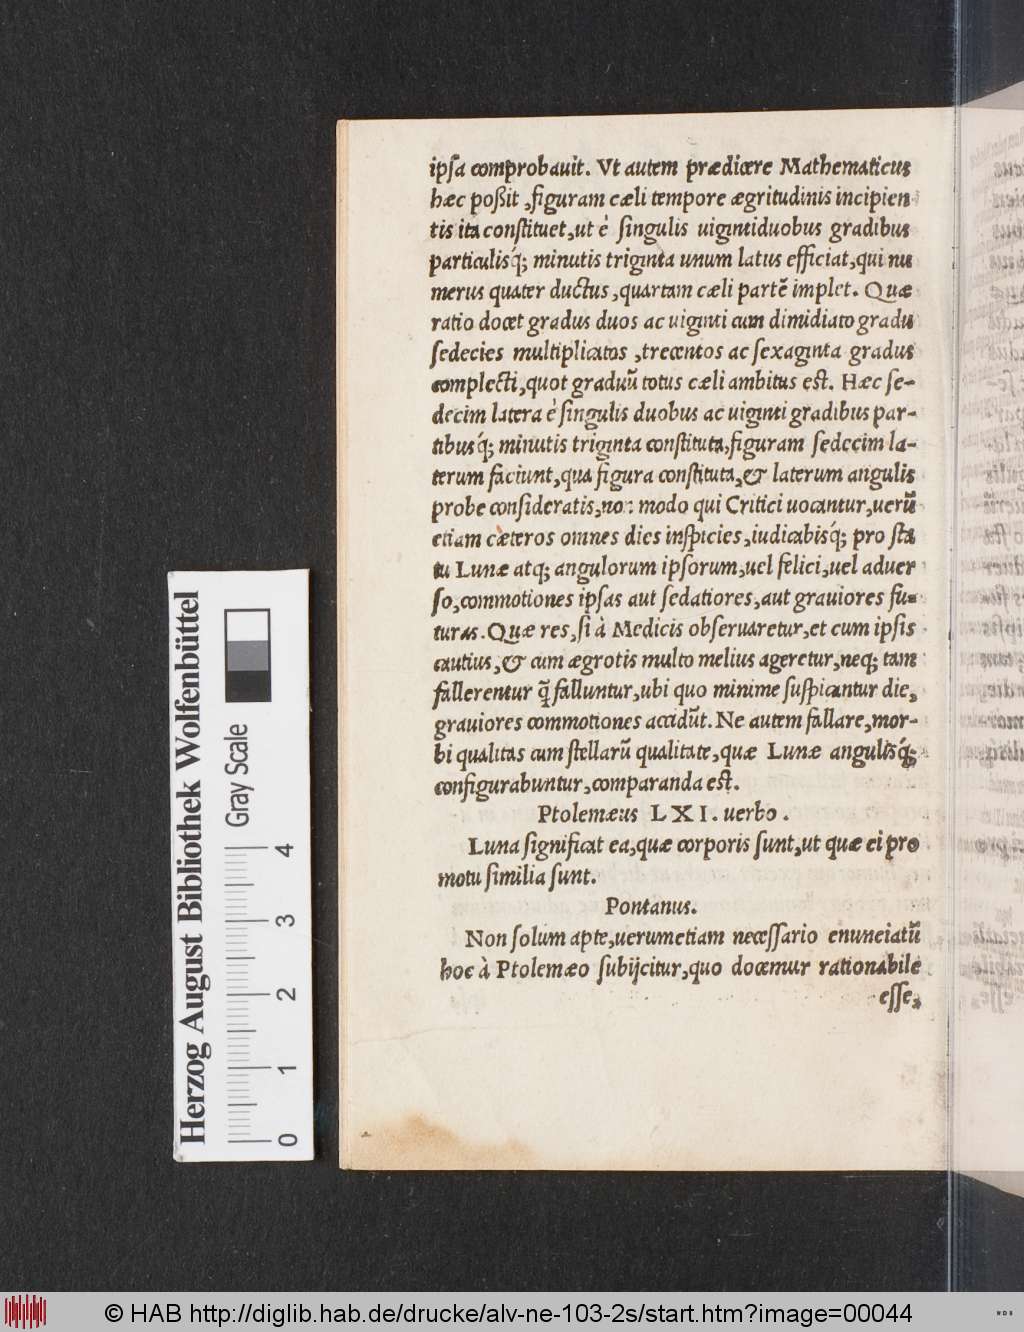 ipſa comprobauit. Vt autem prædicere Mathematicus
hæc poßit, figuram cæli tempore ægritudinis incipien
tis ita conſtituet, ut è ſingulis uigintiduobus gradibus
particulisq́; minutis triginta unum latus efficiat, qui nu
merus quater ductus, quartam cæli partē implet. Quæ
ratio docet gradus duos ac uiginti cum dimidiato gradu
ſedecies multiplicatos, trecentos ac ſexaginta gradus
complecti, quot graduũ totus cæli ambitus eſt. Hæc ſe-
decim latera è ſingulis duobus ac uiginti gradibus par-
tibusq́; minutis triginta conſtituta, figuram ſedecim la-
terum faciunt, qua figura conſtituta, & laterum angulis
probe conſideratis, non modo qui Critici uocantur, uerũ
etiam cæteros omnes dies inſpicies, iudicabisq́; pro ſta
tu Lunæ atq; angulorum ipſorum, uel felici, uel aduer
ſo, commotiones ipſas aut ſedatiores, aut grauiores fu-
turas. Quæ res, ſi à Medicis obſeruaretur, et cum ipſis
cautius, & cum ægrotis multo melius ageretur, neq; tam
fallerentur q̃ falluntur, ubi quo minime ſuſpicantur die,
grauiores commotiones accidũt. Ne autem fallare, mor-
bi qualitas cum ſtellarũ qualitate, quæ Lunæ angulisq́;
configurabuntur, comparanda eſt.
Ptolemæus LXI. uerbo.
Luna ſignificat ea, quæ corporis ſunt, ut quæ ei pro
motu ſimilia ſunt.
Pontanus.
Non ſolum apte, uerumetiam neceſſario enunciatũ
hoc à Ptolemæo ſubijcitur, quo docemur rationabile
eſſe,
Herzog August Bibliothek Wolfenbüttel
Gray Scale
0 1 2 3 4
© HAB http://diglib.hab.de/drucke/alv-ne-103-2s/start.htm?image=00044